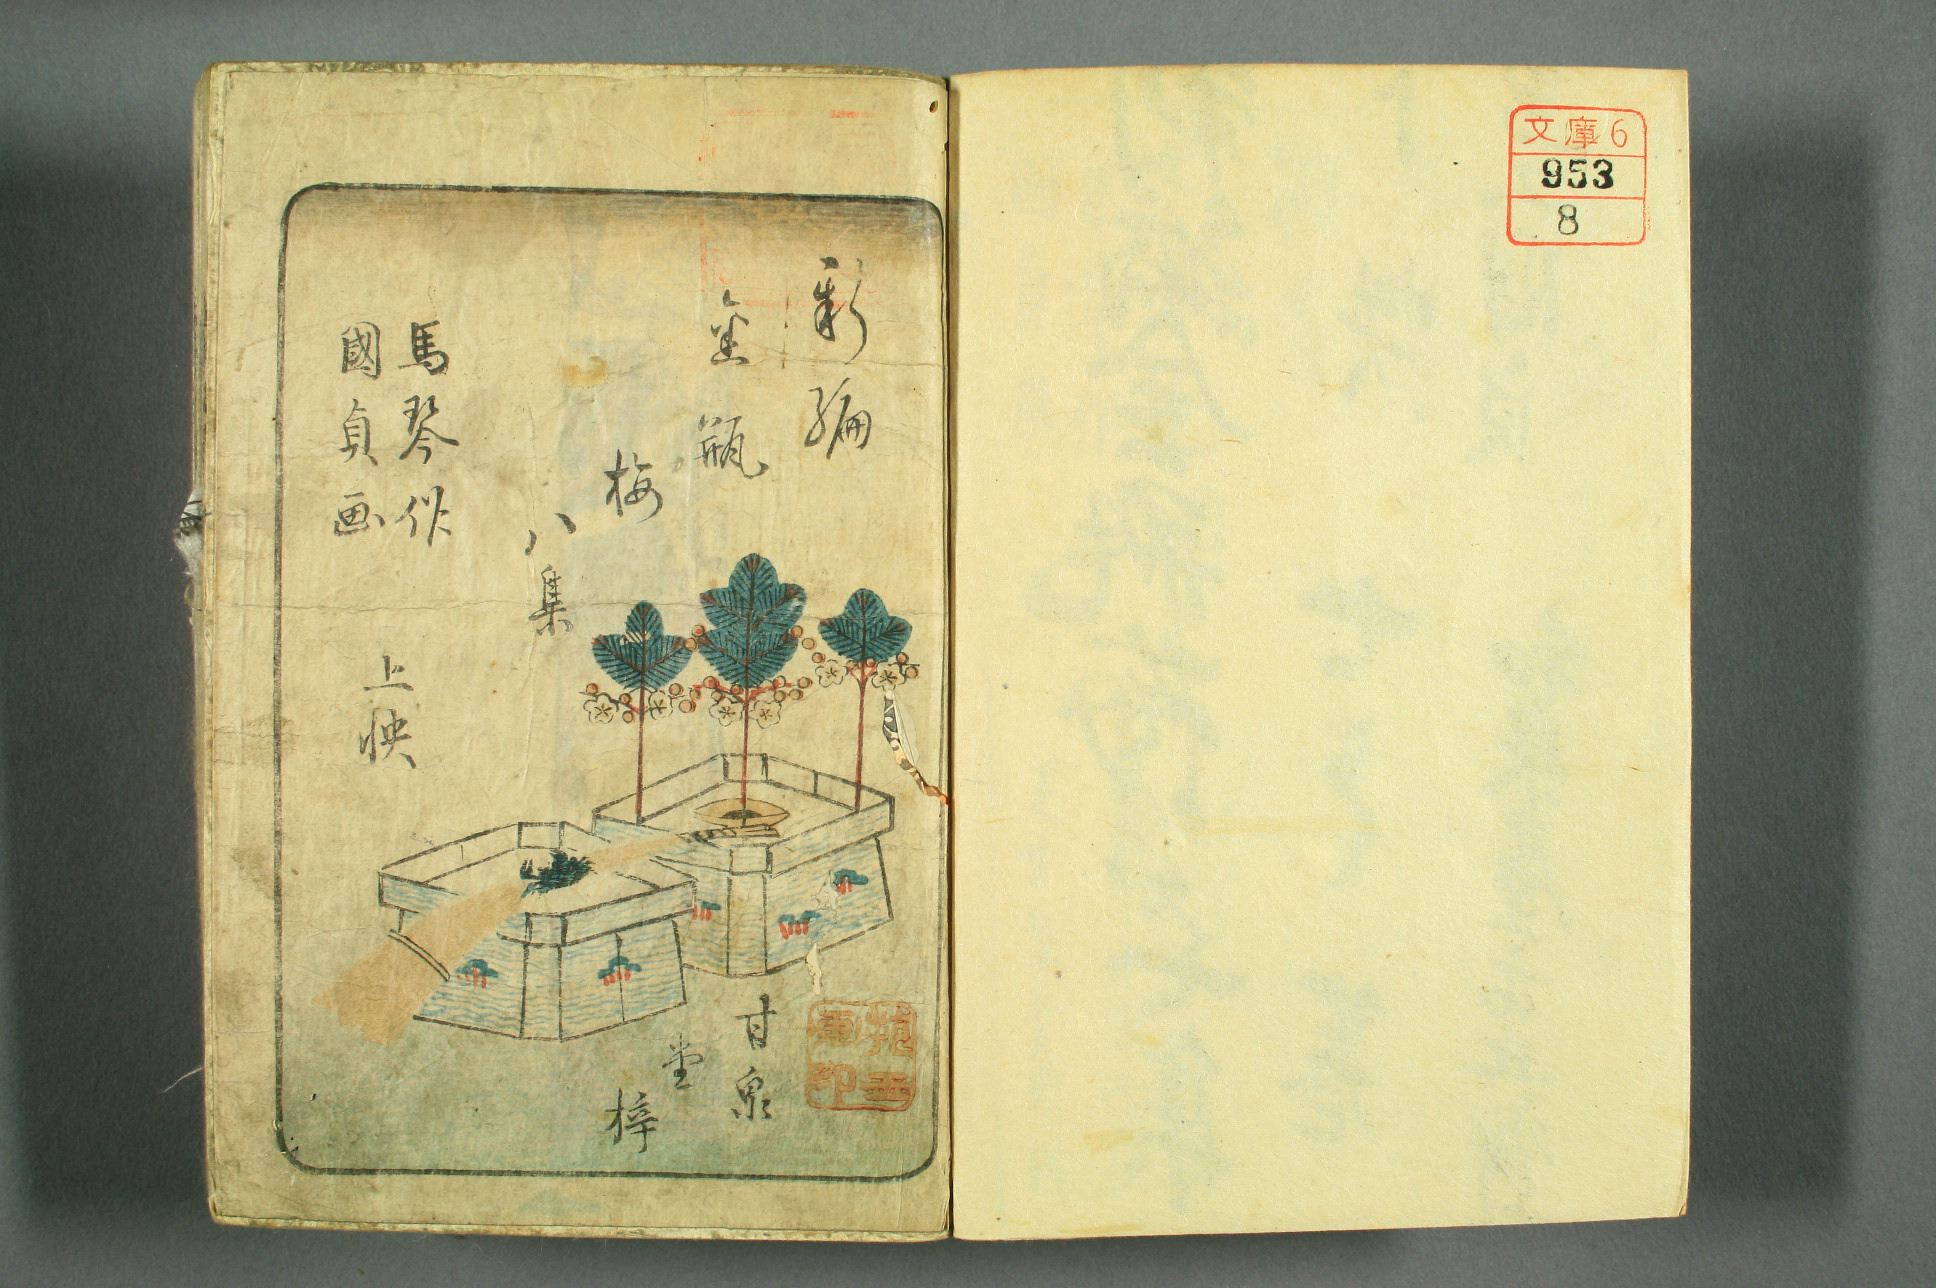 文庫6
953
8
新編
金瓶
梅
八集
馬琴作
國貞画
上帙
甘泉
堂
梓